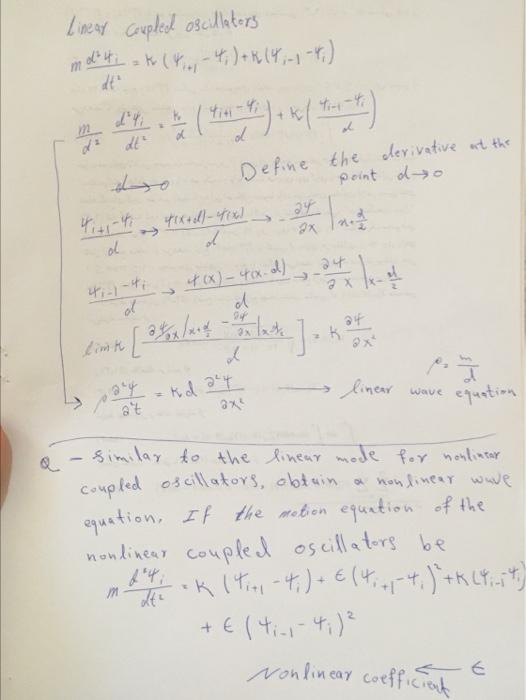 Linear coupled oscillators
m d²ψᵢ/dt² = k (ψᵢ₊₁ - ψᵢ) + k (ψᵢ₋₁ - ψᵢ)
m/d² d²ψᵢ/dt² = k/d (ψᵢ₊₁ - ψᵢ / d) + k (ψᵢ₋₁ - ψᵢ / d)
d → 0 Define the derivative at the
point d → 0
ψᵢ₊₁ - ψᵢ / d → ψ(x+d) - ψ(x) / d → - ∂ψ/∂x |x+d/2
ψᵢ₋₁ - ψᵢ / d → ψ(x) - ψ(x-d) / d → - ∂ψ/∂x |x-d/2
lim k [ ∂ψ/∂x |x+d/2 - ∂ψ/∂x |x-d/2 / d ] = k ∂ψ/∂x²
ρ = m/d
ρ ∂²ψ/∂²t = kd ∂²ψ/∂x² → linear wave equation
Q - Similar to the linear mode for nonlinear
coupled oscillators, obtain a nonlinear wave
equation, If the motion equation of the
nonlinear coupled oscillators be
m d²ψᵢ/dt² = k (ψᵢ₊₁ - ψᵢ) + ϵ (ψᵢ₊₁ - ψᵢ)² + k (ψᵢ₋₁ - ψᵢ)
+ ϵ (ψᵢ₋₁ - ψᵢ)²
Nonlinear coefficient ← ϵ